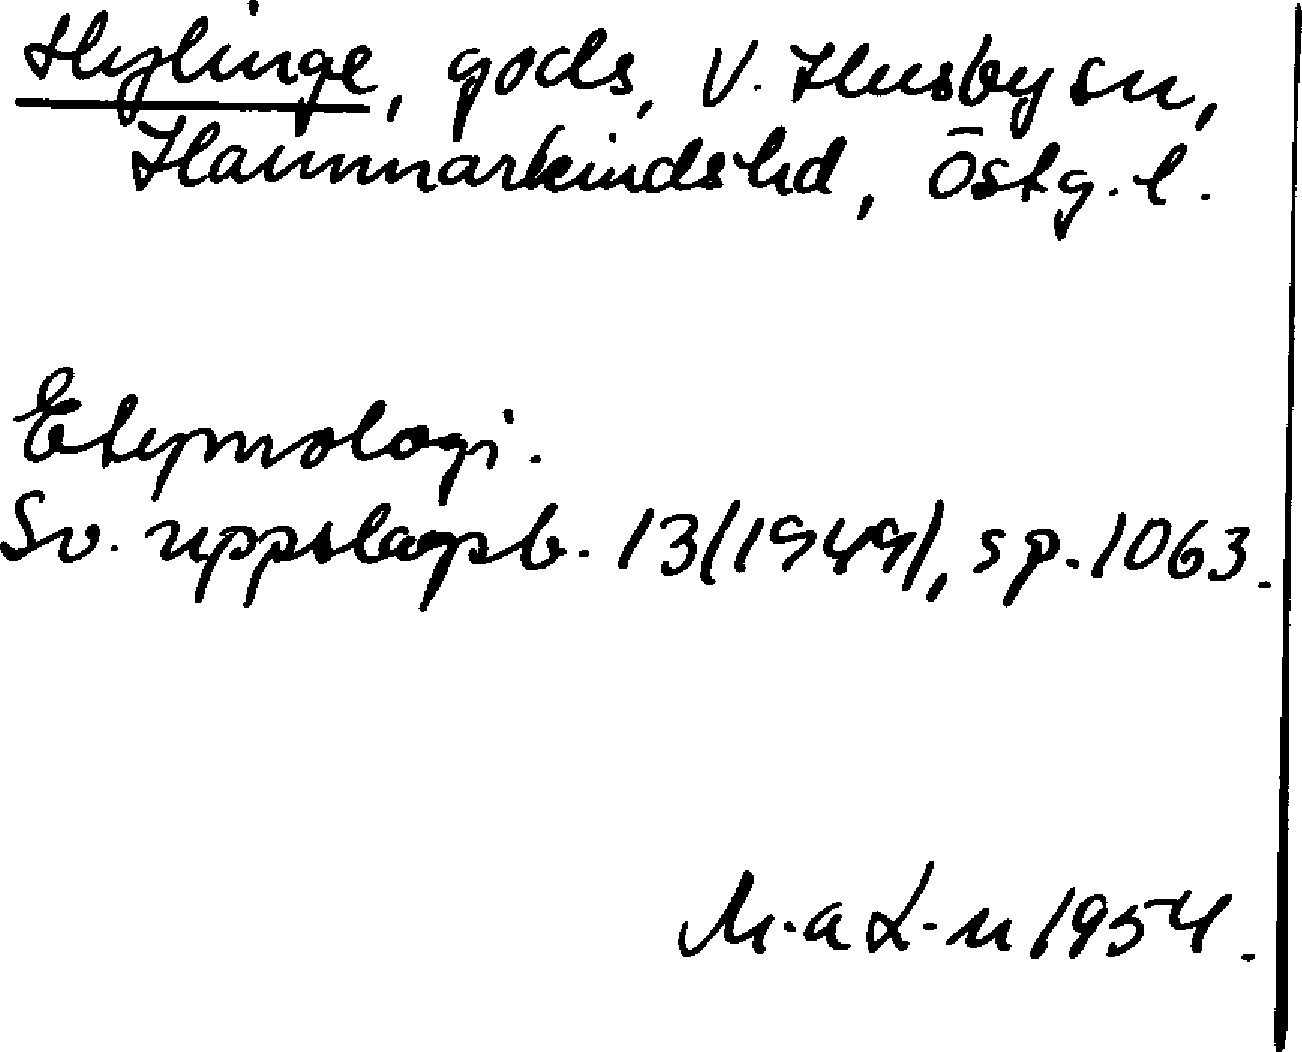 Hylinge, gods, V. Husby sn,
Hammarkinds hd, Östg. l.
Etymologi.
Sv. uppslagsb. 13 (1949), sp. 1063.
M-a L-n 1954.